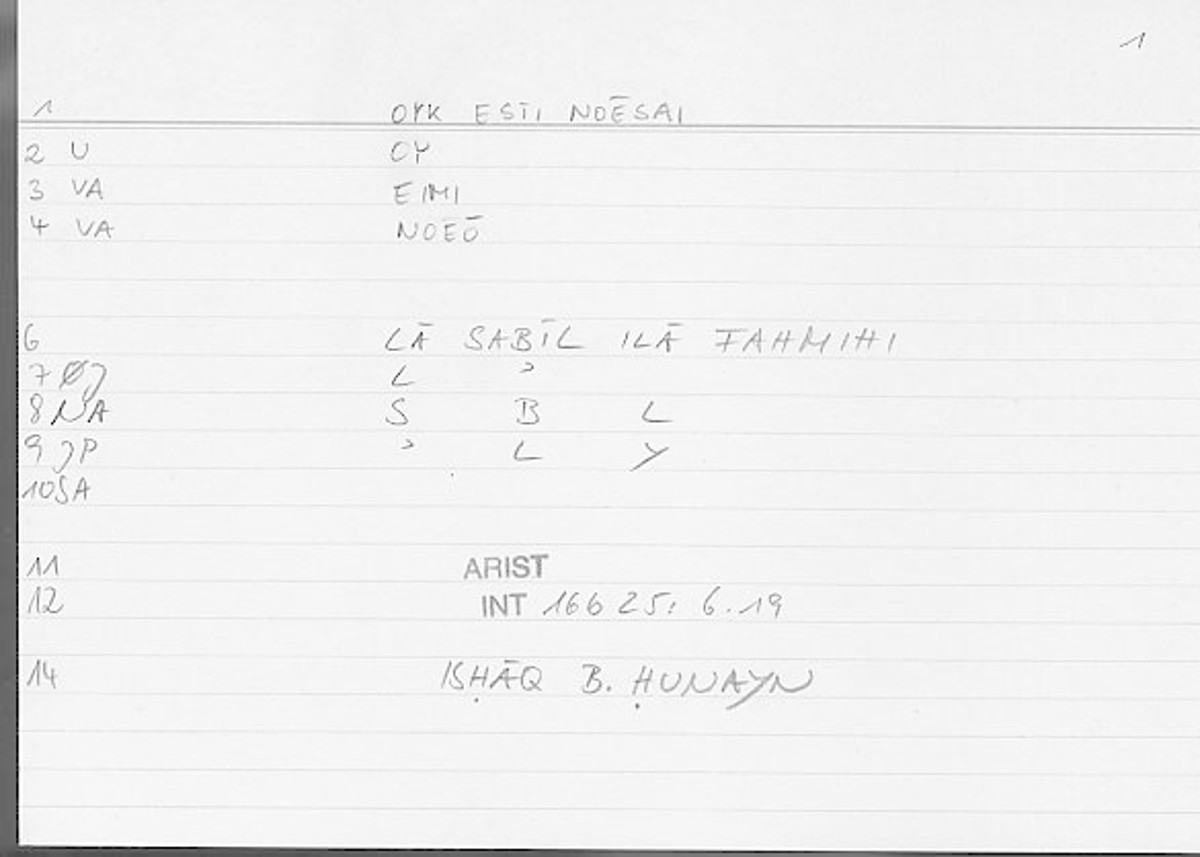 1
1 OYK ESTI NOĒSAI
2 U OY
3 VA EIMI
4 VA NOEŌ
6 LĀ SABĪL ILĀ FAHMIHI
7 ØJ L ʾ
8 NA S B L
9 JP ʾ L Y
10 SA
11 ARIST
12 INT 16b 25: 6.19
14 ISḤĀQ B. ḤUNAYN